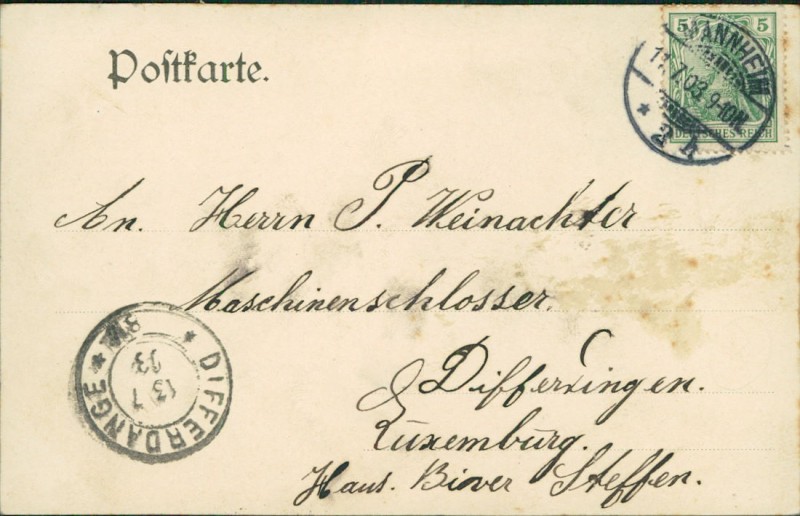 Postkarte.
5 5
DEUTSCHES REICH
MANNHEIM
11.7.03. 9-10N
* 2 h
An. Herrn P. Weinachter
Maschinenschlosser.
Differdingen.
Luxemburg.
Haus. Biver Steffen.
* DIFFERDANGE *
13 7
03